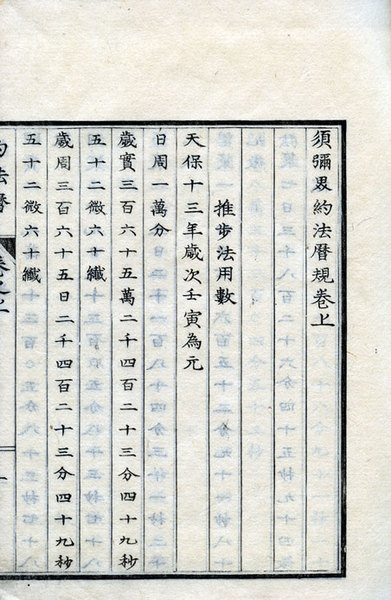 須彌界約法曆規卷上
推步法用數
天保十三年歲次壬寅為元
日周一萬分
歲實三百六十五萬二千四百二十三分四十九秒
五十二微六十纖
歲周三百六十五日二千四百二十三分四十九秒
五十二微六十纖
約法曆
卷之上